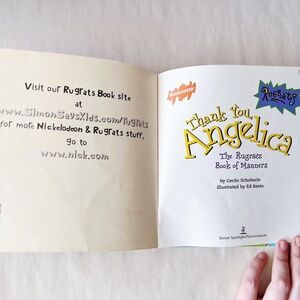 Visit our Rugrats Book site
at
www.SimonSaysKids.com/rugrats
for more Nickelodeon & Rugrats stuff,
go to
www.nick.com
NICKELODEON
Rugrats
Thank You,
Angelica
The Rugrats
Book of Manners
by Cecile Schoberle
Illustrated by Ed Resto
Simon Spotlight/Nickelodeon